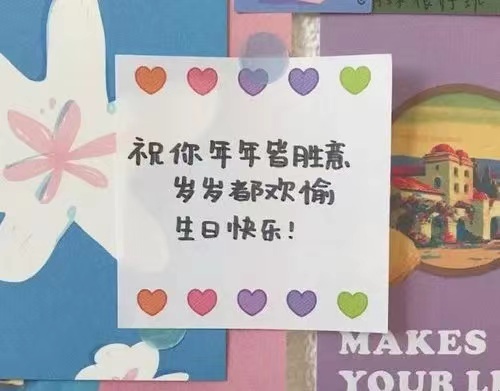 祝你年年皆胜意
岁岁都欢愉
生日快乐！
MAKES
YOUR